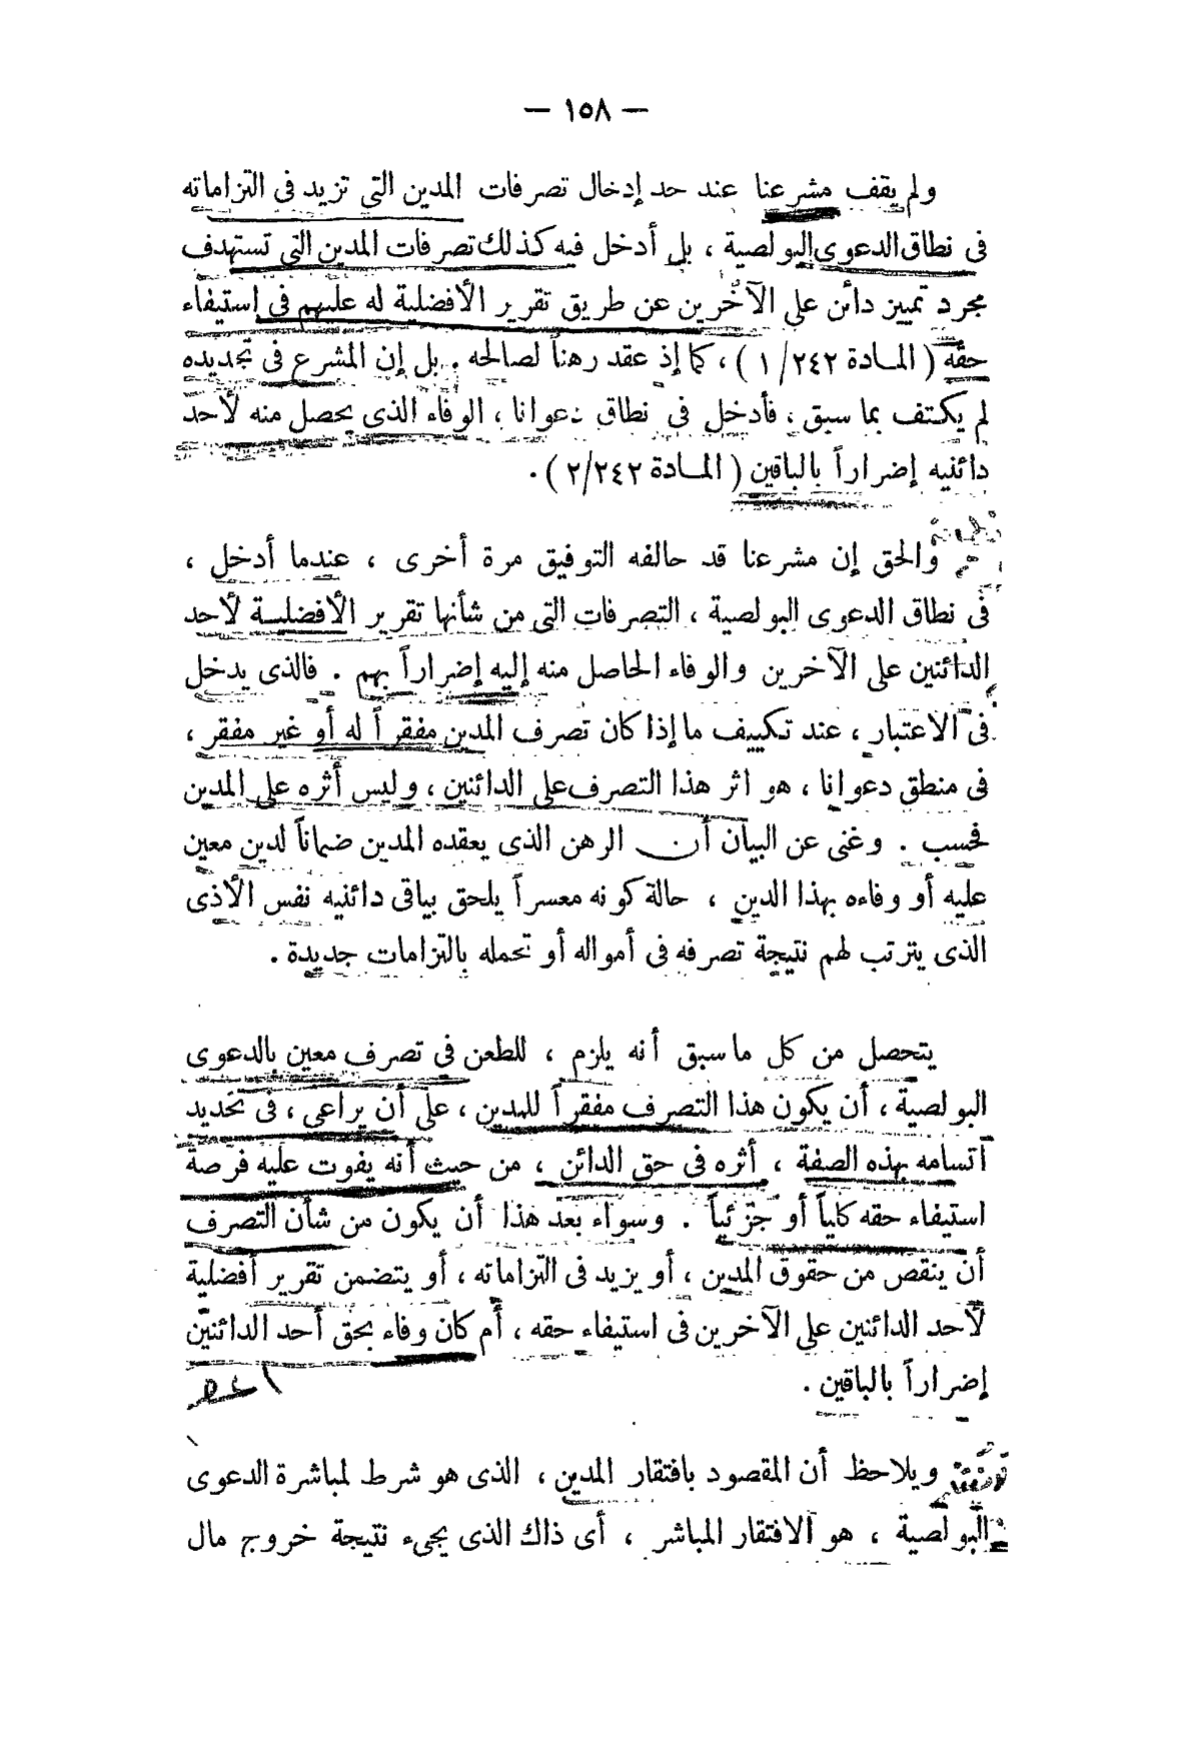 — ١٥٨ —
ولم يقف مشرعنا عند حد إدخال تصرفات المدين التى تزيد فى التزاماته
فى نطاق الدعوى البولصية ، بل أدخل فيه كذلك تصرفات المدين التى تستهدف
مجرد تمييز دائن على الآخرين عن طريق تقرير الأفضلية له عليهم فى استيفاء
حقه ( المادة ٢٤٢/ ١ ) ، كما إذ عقد رهناً لصالحه . بل إن المشرع فى تجديده
لم يكتف بما سبق ، فأدخل فى نطاق دعوانا ، الوفاء الذى يحصل منه لأحد
دائنيه إضراراً بالباقين ( المادة ٢/٢٤٢ ) .
والحق إن مشرعنا قد حالفه التوفيق مرة أخرى ، عندما أدخل ،
فى نطاق الدعوى البولصية ، التصرفات التى من شأنها تقرير الأفضلية لأحد
الدائنين على الآخرين والوفاء الحاصل منه إليه إضراراً بهم . فالذى يدخل
فى الاعتبار ، عند تكييف ما إذا كان تصرف المدين مفقراً له أو غير مفقر ،
فى منطق دعوانا ، هو اثر هذا التصرف على الدائنين ، وليس أثره على المدين
فحسب . وغنى عن البيان أن الرهن الذى يعقده المدين ضماناً لدين معين
عليه أو وفاءه بهذا الدين ، حالة كونه معسراً يلحق بباقى دائنيه نفس الأذى
الذى يترتب لهم نتيجة تصرفه فى أمواله أو تحمله بالتزامات جديدة .
يتحصل من كل ما سبق أنه يلزم ، للطعن فى تصرف معين بالدعوى
البولصية ، أن يكون هذا التصرف مفقراً للمدين ، على أن يراعى ، فى تحديد
اتسامه بهذه الصفة ، أثره فى حق الدائن ، من حيث أنه يفوت عليه فرصة
استيفاء حقه كلياً أو جزئياً . وسواء بعد هذا أن يكون من شأن التصرف
أن ينقص من حقوق المدين ، أو يزيد فى التزاماته ، أو يتضمن تقرير أفضلية
لأحد الدائنين على الآخرين فى استيفاء حقه ، أم كان وفاء بحق أحد الدائنين
إضراراً بالباقين .
ويلاحظ أن المقصود بافتقار المدين ، الذى هو شرط لمباشرة الدعوى
البولصية ، هو الافتقار المباشر ، أى ذاك الذى يجىء نتيجة خروج مال